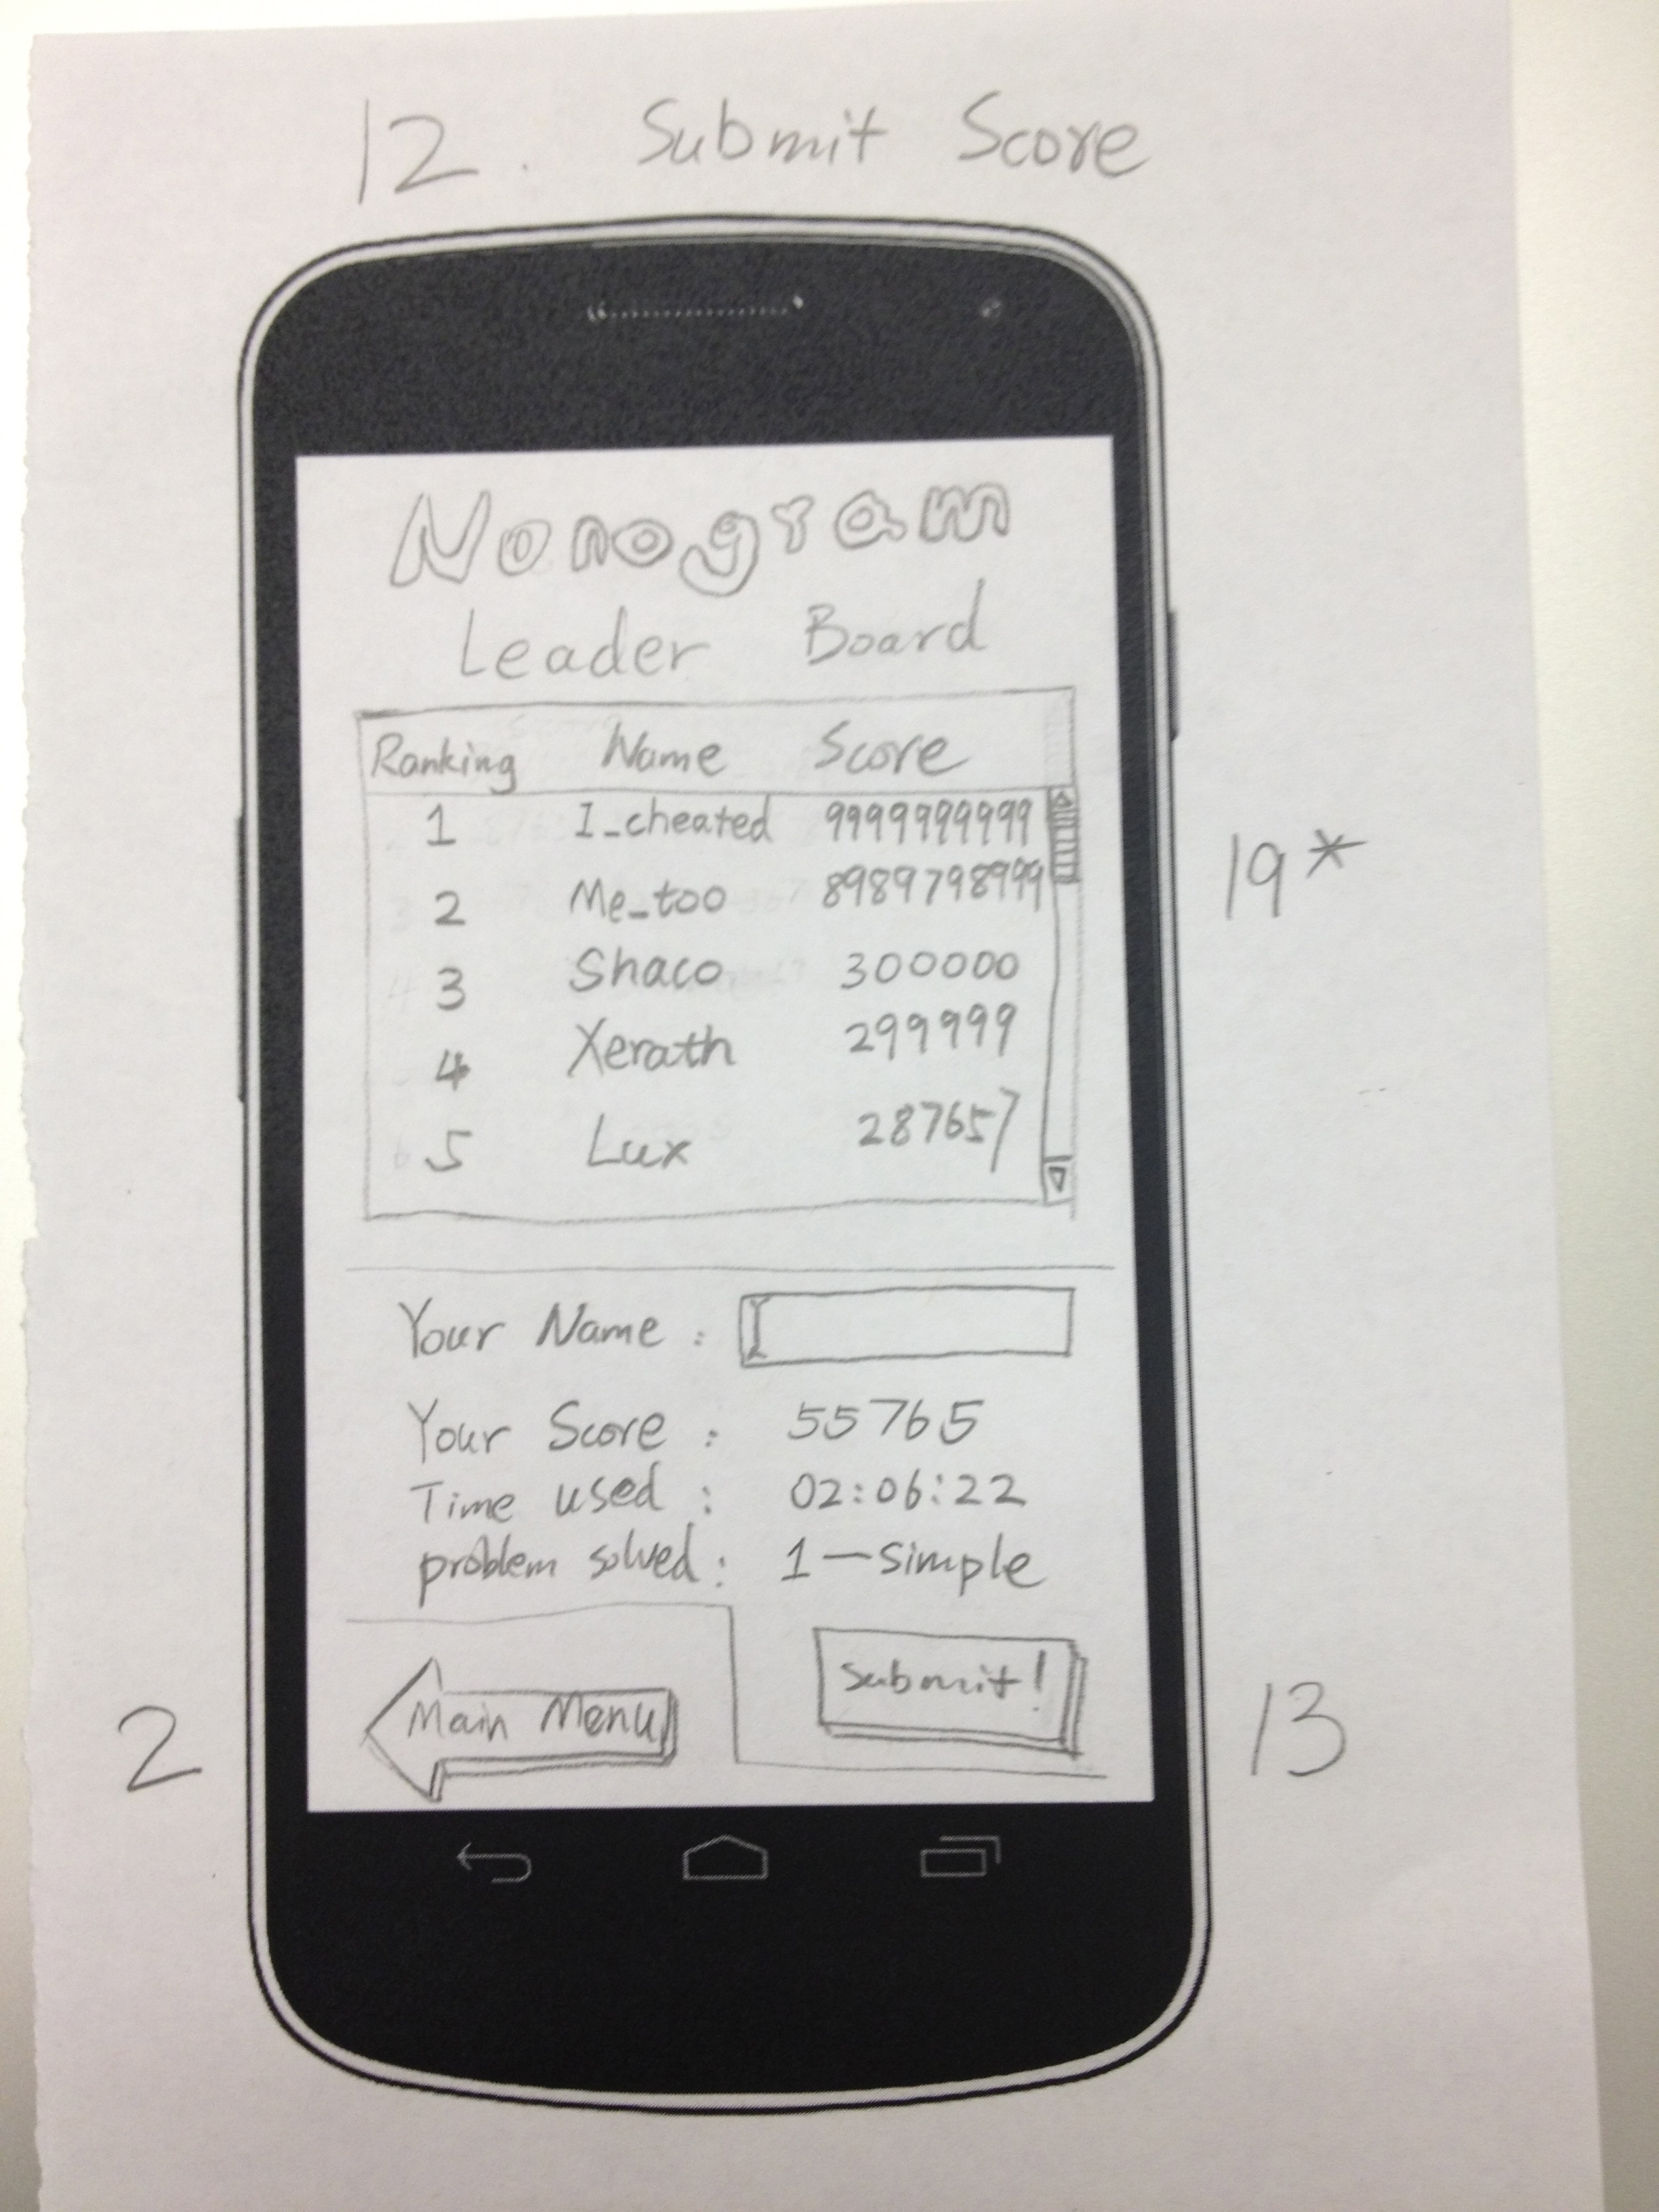 12. Submit Score
Nonogram
Leader Board
Ranking Name Score
1 I_cheated 9999999999
2 Me_too 8989798999
19*
3 Shaco 300000
4 Xerath 299999
5 Lux 287657
Your Name :
Your Score : 55765
Time used : 02:06:22
problem solved : 1—simple
2 Main Menu Submit! 13